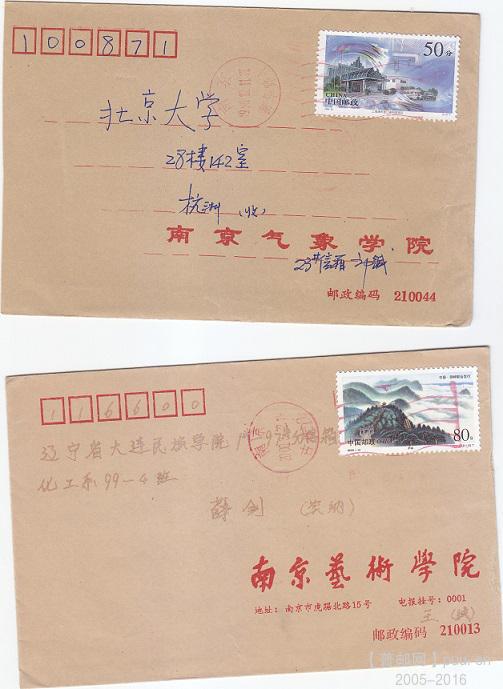 100871
50分
CHINA
中国邮政
北京大学
28楼142室
杭州 (收)
南京气象学院
23#信箱
邮政编码 210044
116600
中国邮政
80分
辽宁省大连民族学院
化工系99-4班
薛剑
南京藝術學院
地址：南京市虎踞北路15号 电报挂号：0001
王(缄)
邮政编码 210013
2005-2016